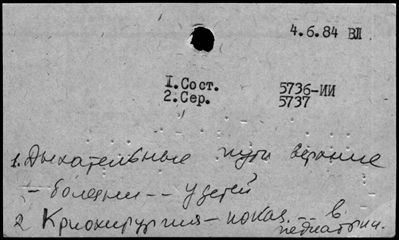 4.6.84 ВЛ
1.Сост. 5736-ИИ
2.Сер. 5737
1. Дыхательные пути верхние
- болезни -- у детей
2 Криохирургия - показ. -- в
педиатрии.